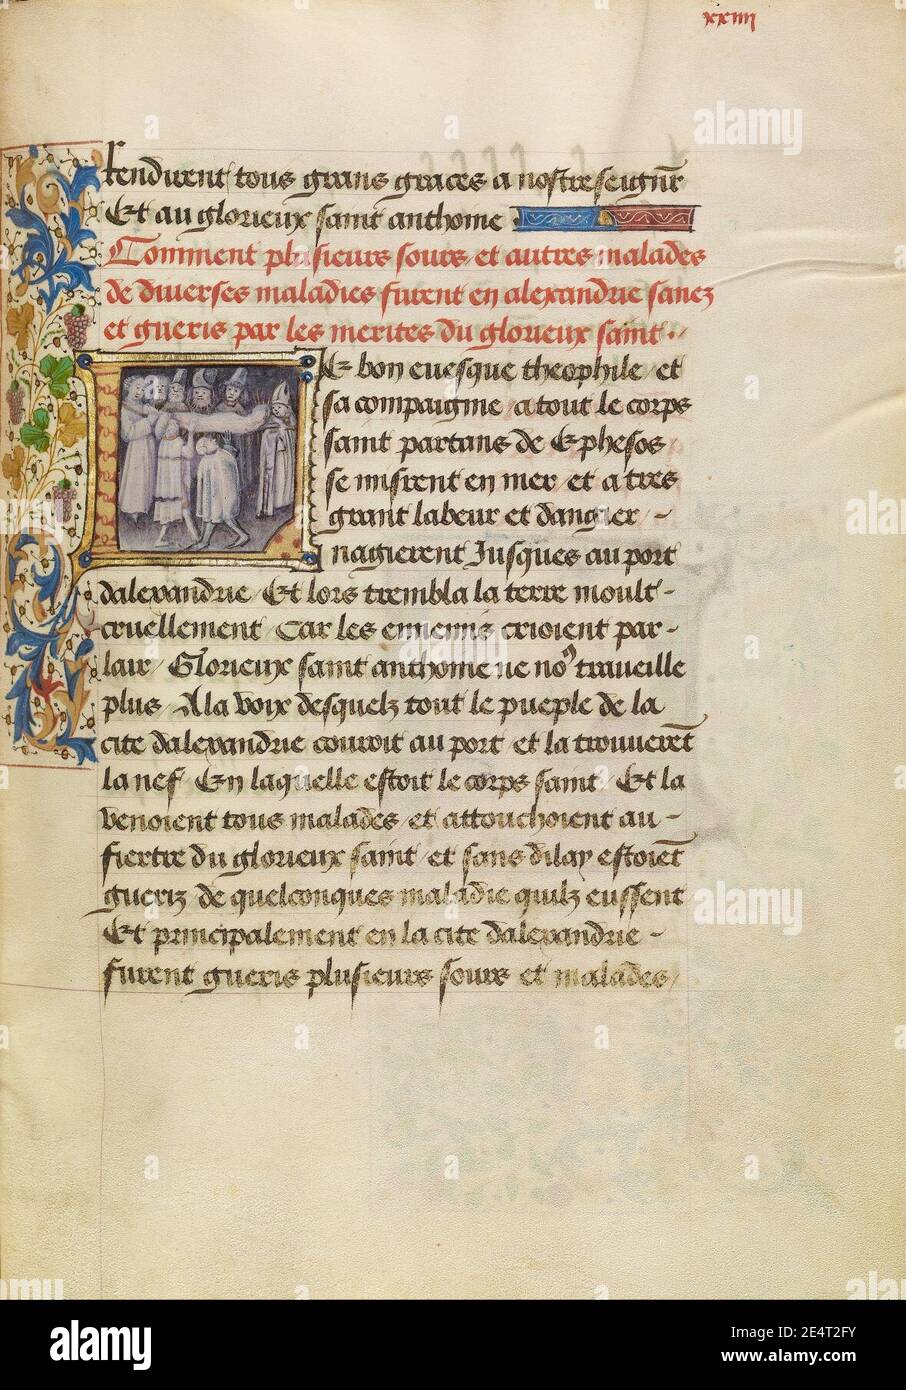 xxiiij
Rendirent tous grans graces a nostre seignr̄
Et au glorieux saint anthoine
Comment plusieurs sours et autres malades
de diuerses maladies furent en alexandrie sanez
et gueris par les merites du glorieux saint
Le bon euesque theophile et
sa compaignie a tout le corps
saint partans de Ephesos
se misrent en mer et a tres
grant labeur et dangier
nagierent Jusques au port
dalexandrie Et lors trembla la terre moult
cruellement Car les ennemis crioient par
lair Glorieux saint anthoine ne noꝰ traueille
plus A la voix desquelz tout le pueple de la
cite dalexandrie couroit au port et la trouuerēt
la nef En laquelle estoit le corps saint Et la
venoient tous malades et attouchoient au
fiertre du glorieux saint et sans dilay estoiēt
gueriz de quelconques maladie quilz eussent
Et principalement en la cite dalexandrie
furent gueris plusieurs sours et malades
alamy
Image ID: 2E4T2FY
www.alamy.com